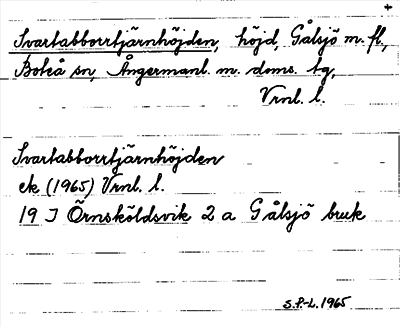 Svartabborrtjärnhöjden, höjd, Gålsjö m. fl.,
Boteå sn, Ångermanl. m. doms. tg,
Vrnl. l.
Svartabborrtjärnhöjden
ek (1965) Vrnl. l.
19 J Örnsköldsvik 2 a Gålsjö bruk
S.P.-L. 1965